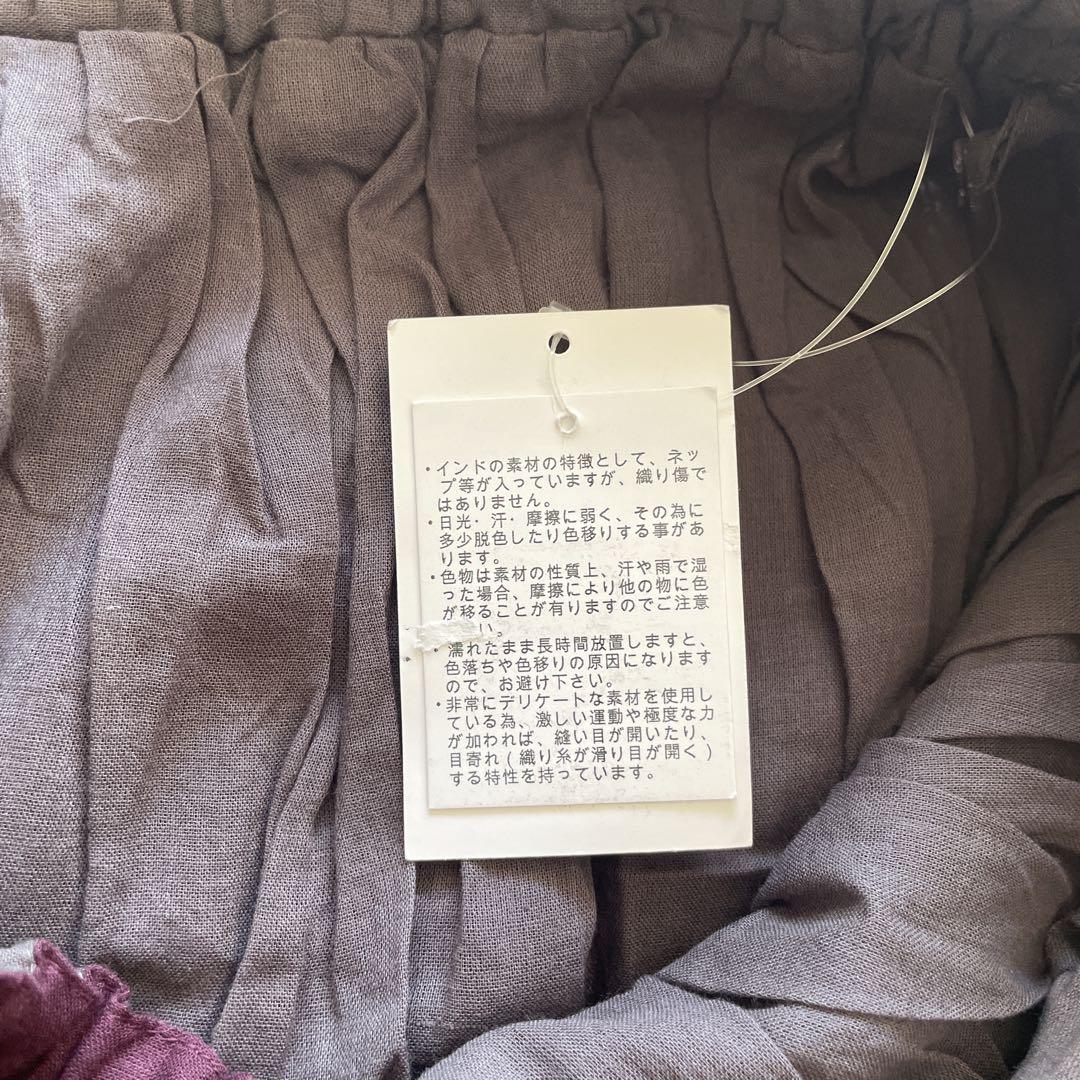 ・インドの素材の特徴として、ネッ
プ等が入っていますが、織り傷で
はありません。
・日光・汗・摩擦に弱く、その為に
多少脱色したり色移りする事があ
ります。
・色物は素材の性質上、汗や雨で湿
った場合、摩擦により他の物に色
が移ることが有りますのでご注意
い。
・濡れたまま長時間放置しますと、
色落ちや色移りの原因になります
ので、お避け下さい。
・非常にデリケートな素材を使用し
ている為、激しい運動や極度な力
が加われば、縫い目が開いたり、
目寄れ(織り糸が滑り目が開く)
する特性を持っています。